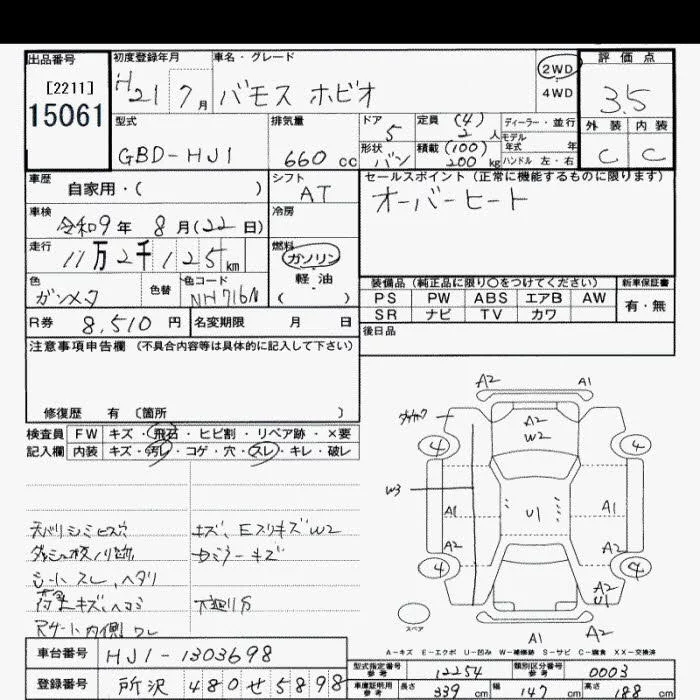 出品番号 初度登録年月 車名・グレード 2WD 評価点
[2211] H21 7月 バモス ホビオ 4WD 3.5
15061
型式 排気量 ドア 定員 (4) ディーラー・並行 外装 内装
5 2人 モデル年式 年
GBD-HJ1 660cc 形状 バン 積載 (100) 200kg ハンドル 左・右 C C
車歴 自家用・( ) シフト AT セールスポイント(正常に機能するものに限ります)
オーバーヒート
車検 令和9年 8月(22日) 冷房
走行 11万2千125km 燃料 ガソリン
軽・油
( )
色 ガンメタ 色替 色コード NH716M
装備品(純正品に限り〇をつけてください) 新車保証書
PS PW ABS エアB AW 有・無
SR ナビ TV カワ
R券 8,510円 名変期限 月 日 後日品
注意事項申告欄(不具合内容等は具体的に記入して下さい)
修復歴 有〔箇所 〕
検査員 FW キズ・飛石・ヒビ割・リペア跡・×要
記入欄 内装 キズ・汚レ・コゲ・穴・スレ・キレ・破レ
天バリシミヒズ穴 キズ、Eスリキズ W2
カミラーキズ
シートスレ、ヘタリ
荷室キズ、ヘコミ 下廻リサ
Rゲート内側ワレ
A2 A1
A2
W2
4 4
W3
A1 U1 A1
A2 A2
4 4
A2
U1
スペア
A1 A2
A-キズ E-エクボ U-凹み W-補修跡 S-サビ C-腐食 XX-交換済
車台番号 HJ1-1303698
登録番号 所沢 480 せ 5898
型式指定番号 参考 12254 類別区分番号 参考 0003
車庫証明用 参考 長さ 339cm 幅 147cm 高さ 188cm